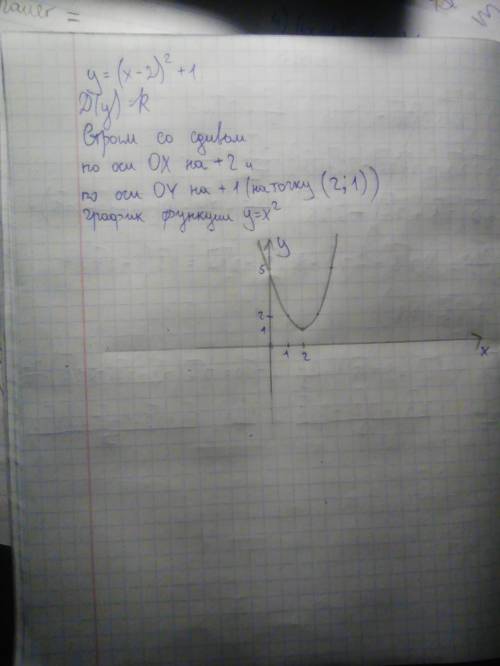 y = (x-2)² + 1
D(y) = R
Строим со сдвигом
по оси OX на +2 и
по оси OY на +1 (на точку (2;1))
график функции y=x²
y
5
2
1
1 2
x